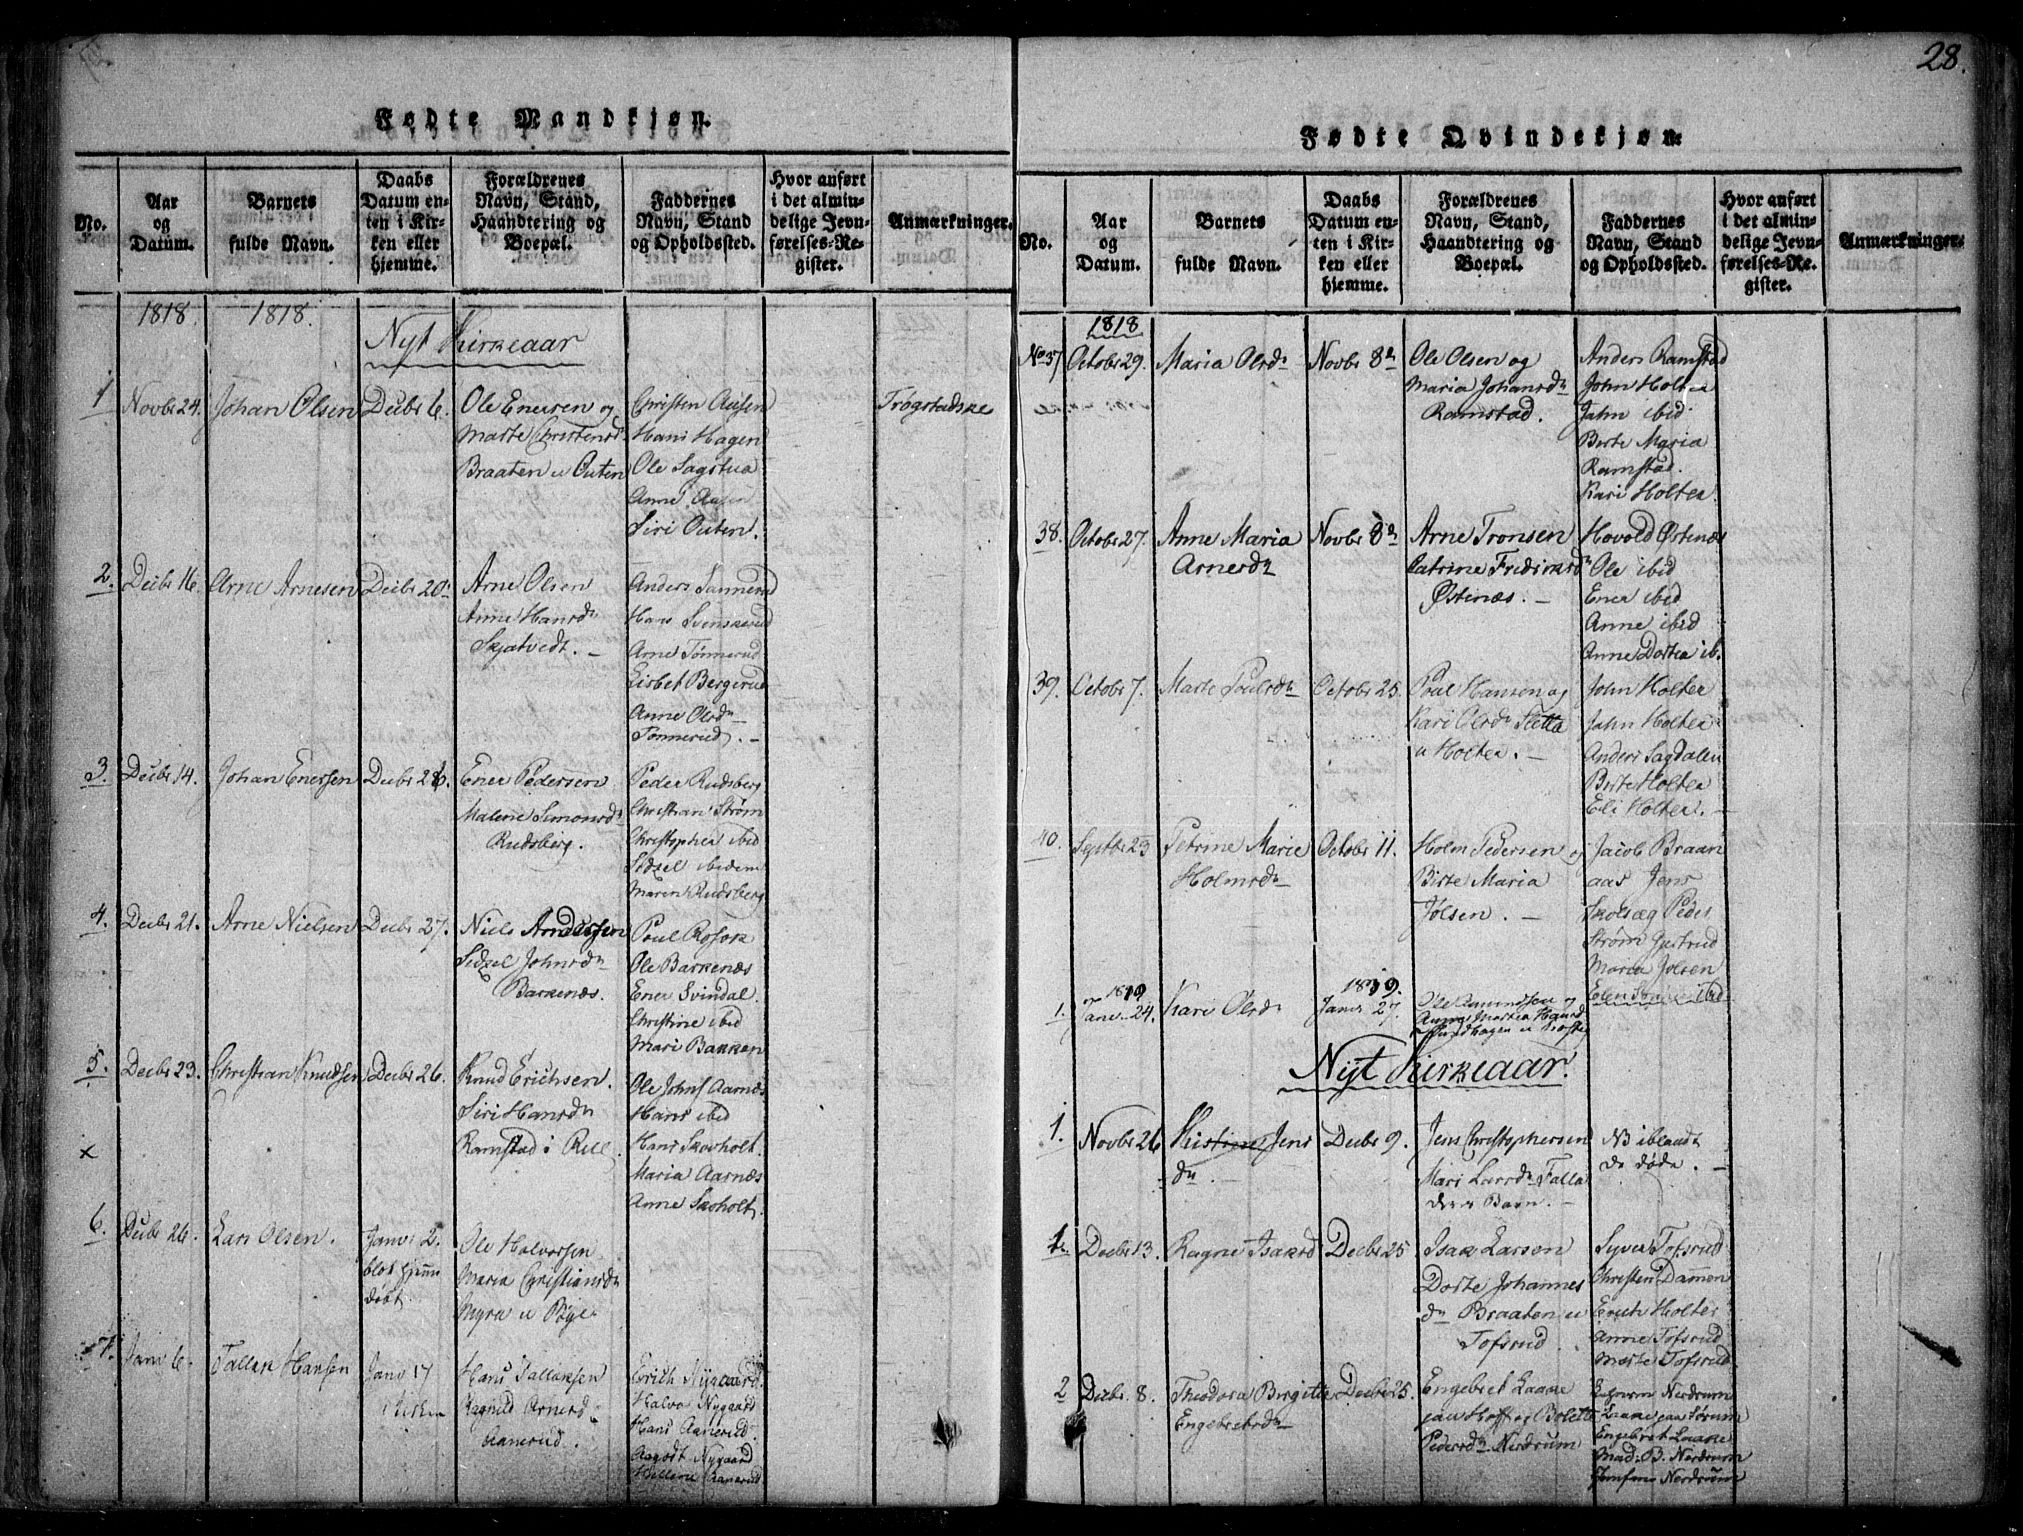 28.
Fødte Mandkjøn.
No.
Aar
og
Datum.
Barnets
fulde Navn.
Daabs
Datum en-
ten i Kir-
ken eller
hjemme.
Forældrenes
Navn, Stand,
Haandtering og
Boepæl.
Faddernes
Navn, Stand
og Opholdssted.
Hvor anført
i det almin-
delige Jevn-
førelses-Re-
gister.
Anmærkninger.
1818.
1818.
Nyt Kirkeaar
1
Novbr 24.
Johan Olsen
Decbr 6.
Ole Enersen og
Marte Christensd.
Braaten u Outen
Christen Ausen
Hans Hagen
Ole Sagstua
Anne Ausen
Siri Outen.
Trøgstadske
2.
Decbr 16.
Arne Arnesen
Decbr 20.
Arne Olsen
Anne Hansdn
Skjatvedt. –
Anders Tannerud
Hans Svenskerud
Arne Tønnerud
Lisbet Bergerud
Anne Olsdn
Tønnerud. –
3.
Decbr 14.
Johan Enersen
Decbr 26.
Ener Pedersen
Malene Simonsdn
Rudsberg.
Peder Rudsberg
Christian Strøm
Christopher ibid
Sidsel ibidem
Maren Rudsberg
4.
Decbr 21.
Arne Nielsen
Decbr 27.
Niels Andersen
Sidsel Johnsdn
Barkenæs.
Poul Rosok
Ole Barkenæs
Ener Svindal.
Christine ibid
Mari Bakken
5.
Decbr 23.
Christian Knudsen
Decbr 26.
Knud Erichsen.
Siri Hansdn
Ramstad i Rell.
Ole Johns Aarnæs
Hans ibid
Hans Skovholt.
Maria Aarnæs
Anne Skoholt.
x
6.
Decbr 26.
Lars Olsen.
Janv: 2.
blot hjem
døbt.
Ole Halvorsen
Maria Christiansdn
Myra u Bøye
7.
Janv 6.
Tallak Hansen
Janv 17
i Kirken
Hans Tallaksen
Ragnild Arnesdn
Aanerud.
Erich Nygaard.
Halvo Nygaard
Hans Aanerud.
Aagodt Nygaard
Hellene Aanerud
Fødte Qvindekjøn.
No.
Aar
og
Datum.
Barnets
fulde Navn.
Daabs
Datum en-
ten i Kir-
ken eller
hjemme.
Forældrenes
Navn, Stand,
Haandtering og
Boepæl.
Faddernes
Navn, Stand
og Opholdssted.
Hvor anført
i det almin-
delige Jevn-
førelses-Re-
gister.
Anmærkninger.
1818
No 37
Octobr 29.
Maria Olsdn
Novbr 8de
Ole Olsen og
Maria Johansdn
Ramstad.
Anders Ramstad
John Holter
Jahn ibid
Berte Maria
Ramstad.
Kari Holter
38.
Octobr 27.
Anne Maria
Arnesdn
Novbr 8de
Arne Tronsen
Catrine Fredriksdn
Østenæs. –
Hovold Østenæs
Ole ibid
Ener ibid
Anne ibid
Anne Dortea ib.
39.
Octobr 7.
Marte Poulsdn
Octobr 25.
Poul Hansen og
Kari Olsdn Sletta
u Holter. –
John Holter
Jahn Holter
Anders Sagdalen
Berte Holter
Eli Holter. –
40.
Septbr 23
Petrine Marie
Holmsdn
Octobr 11.
Holm Pedersen og
Birte Maria
Jølsen. –
Jacob Braan
aas Jens
Skolsæg Peder
Strøm Gjestrud
Maria Jølsen
1.
1819
Janv 24.
Kari Olsdn
1819.
Janv 27.
Ole Amundsen og
Anne Martea Hansd
Nyt Kirkeaar.
1.
Novbr 26
Kistine Jens
dn.
Decbr 9.
Jens Christophersen
Mari Larsdn Falla
deres Barn. –
NB iblandt
de døde. –
1.
Decbr 13.
Ragne Isaksd
Decbr 25
Isak Larsen
Dorte Johannes
dn Braaten u
Tofsrud.
Syver Tofsrud
Christen Dammen
Erich Holter
Anne Tofsrud
Marte Tofsrud
2
Decbr 8.
Theodora Birgitte
Engebretsdn
Decbr 25.
Engebret Laake
paa Hoff og Bolette
Pedersdn Nerdrum
Nerdrum
Laake paa Sørum
Engebret Laake
Mad: B. Nerdrum
Jomfru Nerdrum